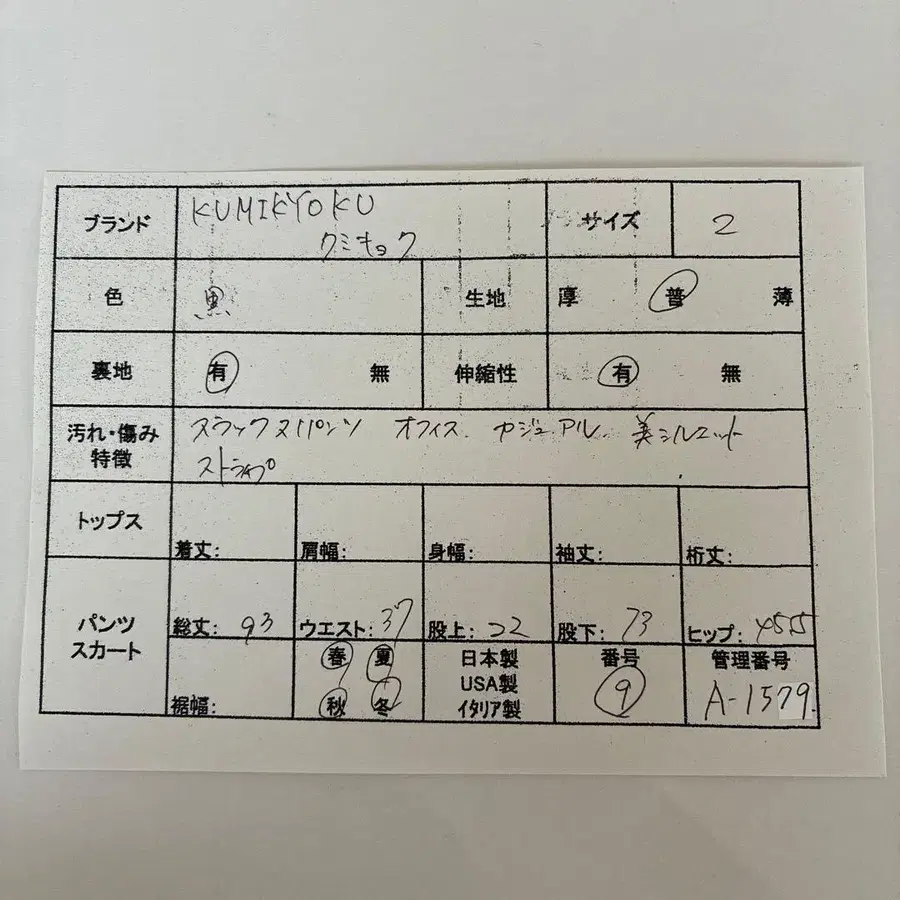 ブランド KUMIKYOKU サイズ 2
クミキョク
色 黒 生地 厚 普 薄
裏地 有 無 伸縮性 有 無
汚れ・傷み スラックスパンツ オフィス. カジュアル. 美シルエット
特徴 ストラップ
トップス
着丈: 肩幅: 身幅: 袖丈: 裄丈:
パンツ
スカート
総丈: 93 ウエスト: 37 股上: 22 股下: 73 ヒップ: 45.5
裾幅: 春 夏 日本製 番号 管理番号
USA製
秋 冬 イタリア製 9 A-1579.